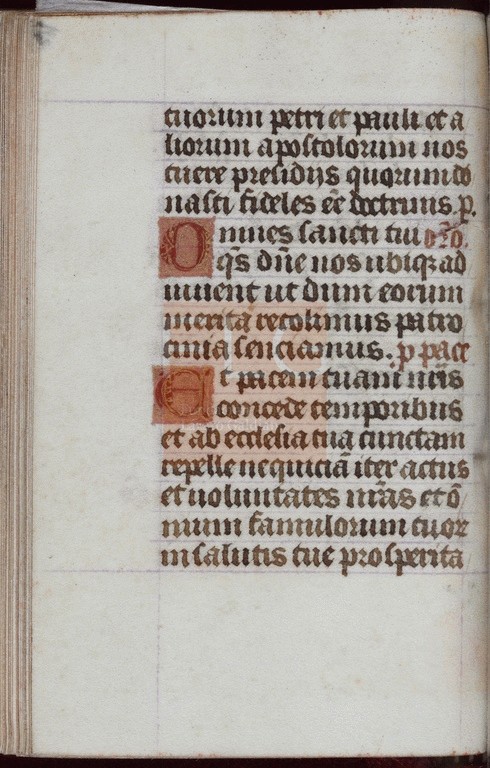 tuorum petri et pauli et a
liorum apostolorum nos
tuere presidijs quorum do
nasti fideles eē doctrinis. p.
Omnes sancti tui oro.
qs dn̄e nos ubiqꝫ ad
iuuent ut dum eorum
merita recolimus patro
cinia senciamus. p pace
Et pacem tuam nr̄is
concede temporibus
et ab ecclesia tua cunctam
repelle nequiciā iter actus
et uoluntates nr̄as et ō
nium famulorum tuorꝫ
in salutis tue prosperita